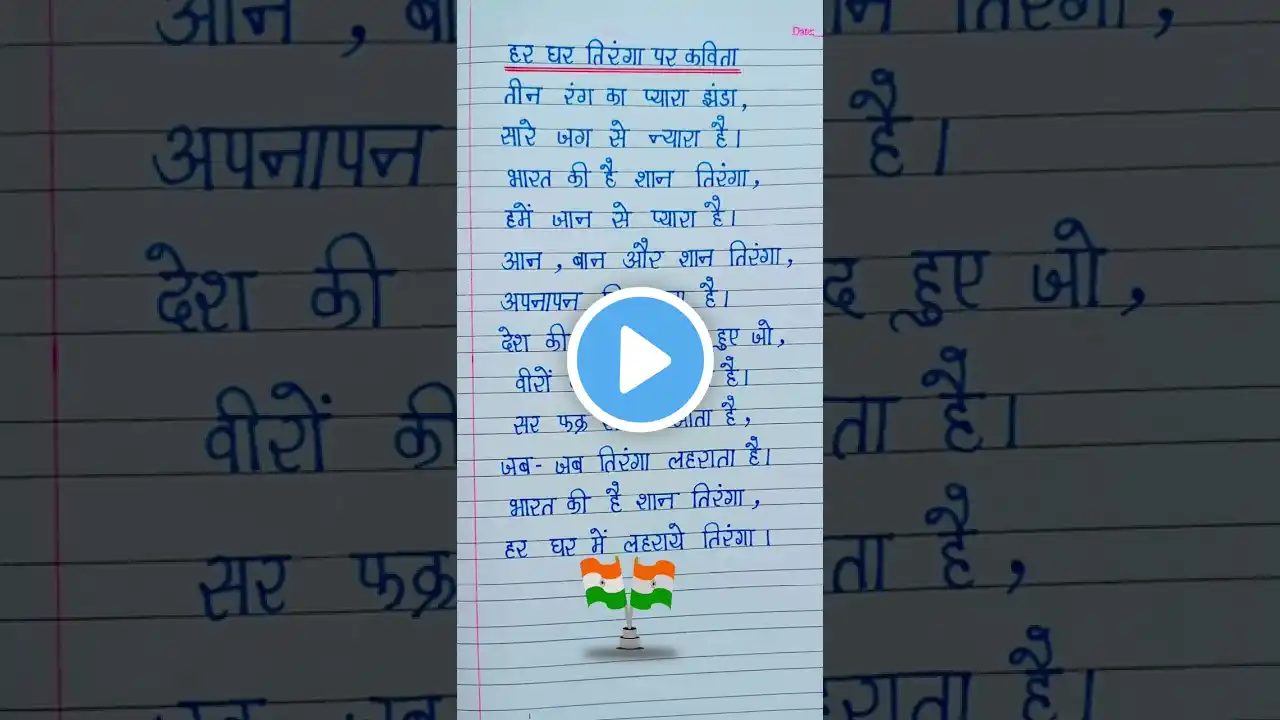 Date:
हर घर तिरंगा पर कविता
तीन रंग का प्यारा झंडा,
सारे जग से न्यारा है।
भारत की है शान तिरंगा,
हमें जान से प्यारा है।
आन , बान और शान तिरंगा,
अपनापन है।
देश की हुए जो,
वीरों है।
सर फक्र है,
जब- जब तिरंगा लहराता है।
भारत की है शान तिरंगा,
हर घर में लहराये तिरंगा।